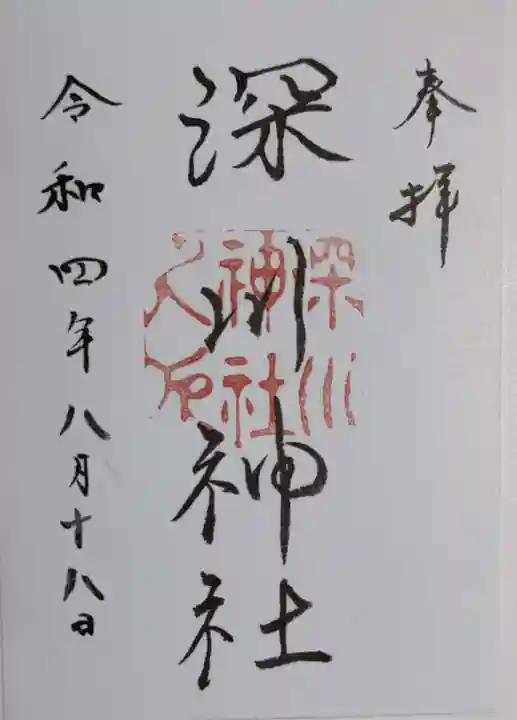 奉拝
深川神社
深川
神社
之印
令和四年八月十八日